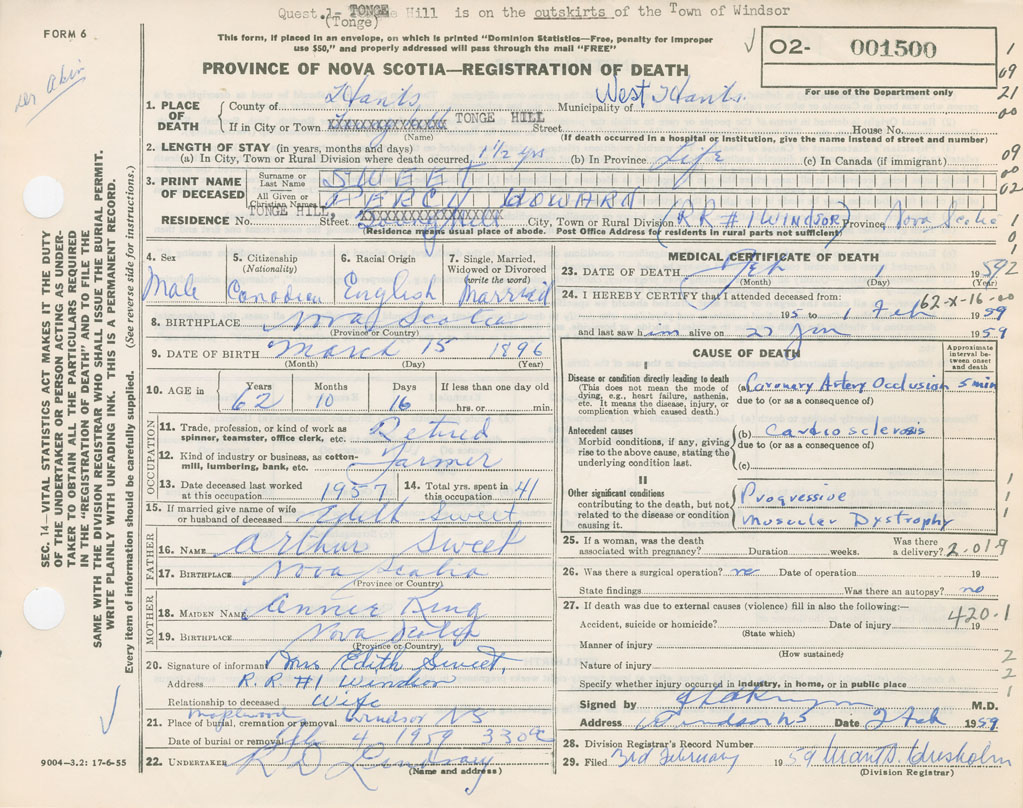 Quest 1- TONGE Hill is on the outskirts of the Town of Windsor
(Tonge)
FORM 6
This form, if placed in an envelope, on which is printed "Dominion Statistics—Free, penalty for improper
use $50," and properly addressed will pass through the mail "FREE"
02- 001500
For use of the Department only
PROVINCE OF NOVA SCOTIA—REGISTRATION OF DEATH
1. PLACE OF DEATH
County of Hants Municipality of West Hants.
If in City or Town TONGE HILL Street House No.
(Name) (If death occurred in a hospital or Institution, give the name instead of street and number)
2. LENGTH OF STAY (in years, months and days)
(a) In City, Town or Rural Division where death occurred, 1 1/2 yrs (b) In Province Life (c) In Canada (if immigrant)
3. PRINT NAME OF DECEASED
Surname or Last Name SWEET
All Given or Christian Names PERCY HOWARD
RESIDENCE No. TONGE HILL, Street City, Town or Rural Division (RR #1 WINDSOR) Province, Nova Scotia
(Residence means usual place of abode. Post Office Address for residents in rural parts not sufficient)
4. Sex Male
5. Citizenship (Nationality) Canadian
6. Racial Origin English
7. Single, Married, Widowed or Divorced (write the word) Married
8. BIRTHPLACE Nova Scotia
(Province or Country)
9. DATE OF BIRTH March 15 1896
(Month) (Day) (Year)
10. AGE in Years 62 Months 10 Days 16 If less than one day old hrs. or min.
OCCUPATION
11. Trade, profession, or kind of work as spinner, teamster, office clerk, etc. Retired
12. Kind of industry or business, as cotton-mill, lumbering, bank, etc. Farmer
13. Date deceased last worked at this occupation 1957
14. Total yrs. spent in this occupation 41
15. If married give name of wife or husband of deceased Edith Sweet
FATHER
16. NAME Arthur Sweet
17. BIRTHPLACE Nova Scotia
(Province or Country)
MOTHER
18. MAIDEN NAME Annie King
19. BIRTHPLACE Nova Scotia
(Province or Country)
20. Signature of informant Mrs Edith Sweet,
Address R.R. #1 Windsor
Relationship to deceased Wife
21. Place of burial, cremation or removal Maplewood Windsor NS
Date of burial or removal Feb 4 1959
22. UNDERTAKER R D Lindsay
(Name and address)
9004-3.2: 17-6-55
MEDICAL CERTIFICATE OF DEATH
23. DATE OF DEATH Feb 1 1959
(Month) (Day) (Year)
24. I HEREBY CERTIFY that I attended deceased from:
62-X-16-00
195 to 1 Feb 1959
and last saw him alive on 27 Jan 1959
CAUSE OF DEATH
Approximate interval between onset and death
I
Disease or condition directly leading to death (a) Coronary Artery Occlusion 5 min
(This does not mean the mode of dying, e.g., heart failure, asthenia, etc. It means the disease, injury, or complication which caused death.)
due to (or as a consequence of)
Antecedent causes (b) Cardiosclerosis
Morbid conditions, if any, giving rise to the above cause, stating the underlying condition last.
due to (or as a consequence of)
(c)
II
Other significant conditions contributing to the death, but not related to the disease or condition causing it.
Progressive
Muscular Dystrophy
25. If a woman, was the death associated with pregnancy? Duration weeks. Was there a delivery?
2.019
26. Was there a surgical operation? no Date of operation 19
State findings Was there an autopsy? no
27. If death was due to external causes (violence) fill in also the following:—
420.1
Accident, suicide or homicide? Date of injury 19
(State which)
Manner of injury
(How sustained)
Nature of injury
Specify whether injury occurred in industry, in home, or in public place
Signed by M.D.
Address Windsor NS Date 2 Feb 1959
28. Division Registrar's Record Number
29. Filed 3rd February 1959
(Division Registrar)
SEC. 14—VITAL STATISTICS ACT MAKES IT THE DUTY
OF THE UNDERTAKER OR PERSON ACTING AS UNDER-
TAKER TO OBTAIN ALL THE PARTICULARS REQUIRED
IN THIS "REGISTRATION OF DEATH" AND TO FILE THE
SAME WITH THE DIVISION REGISTRAR WHO SHALL ISSUE THE BURIAL PERMIT.
WRITE PLAINLY WITH UNFADING INK. THIS IS A PERMANENT RECORD.
Every item of information should be carefully supplied. (See reverse side for instructions.)
1
09
21
00
09
00
02
1
0
1
1
1
1
2
2
1